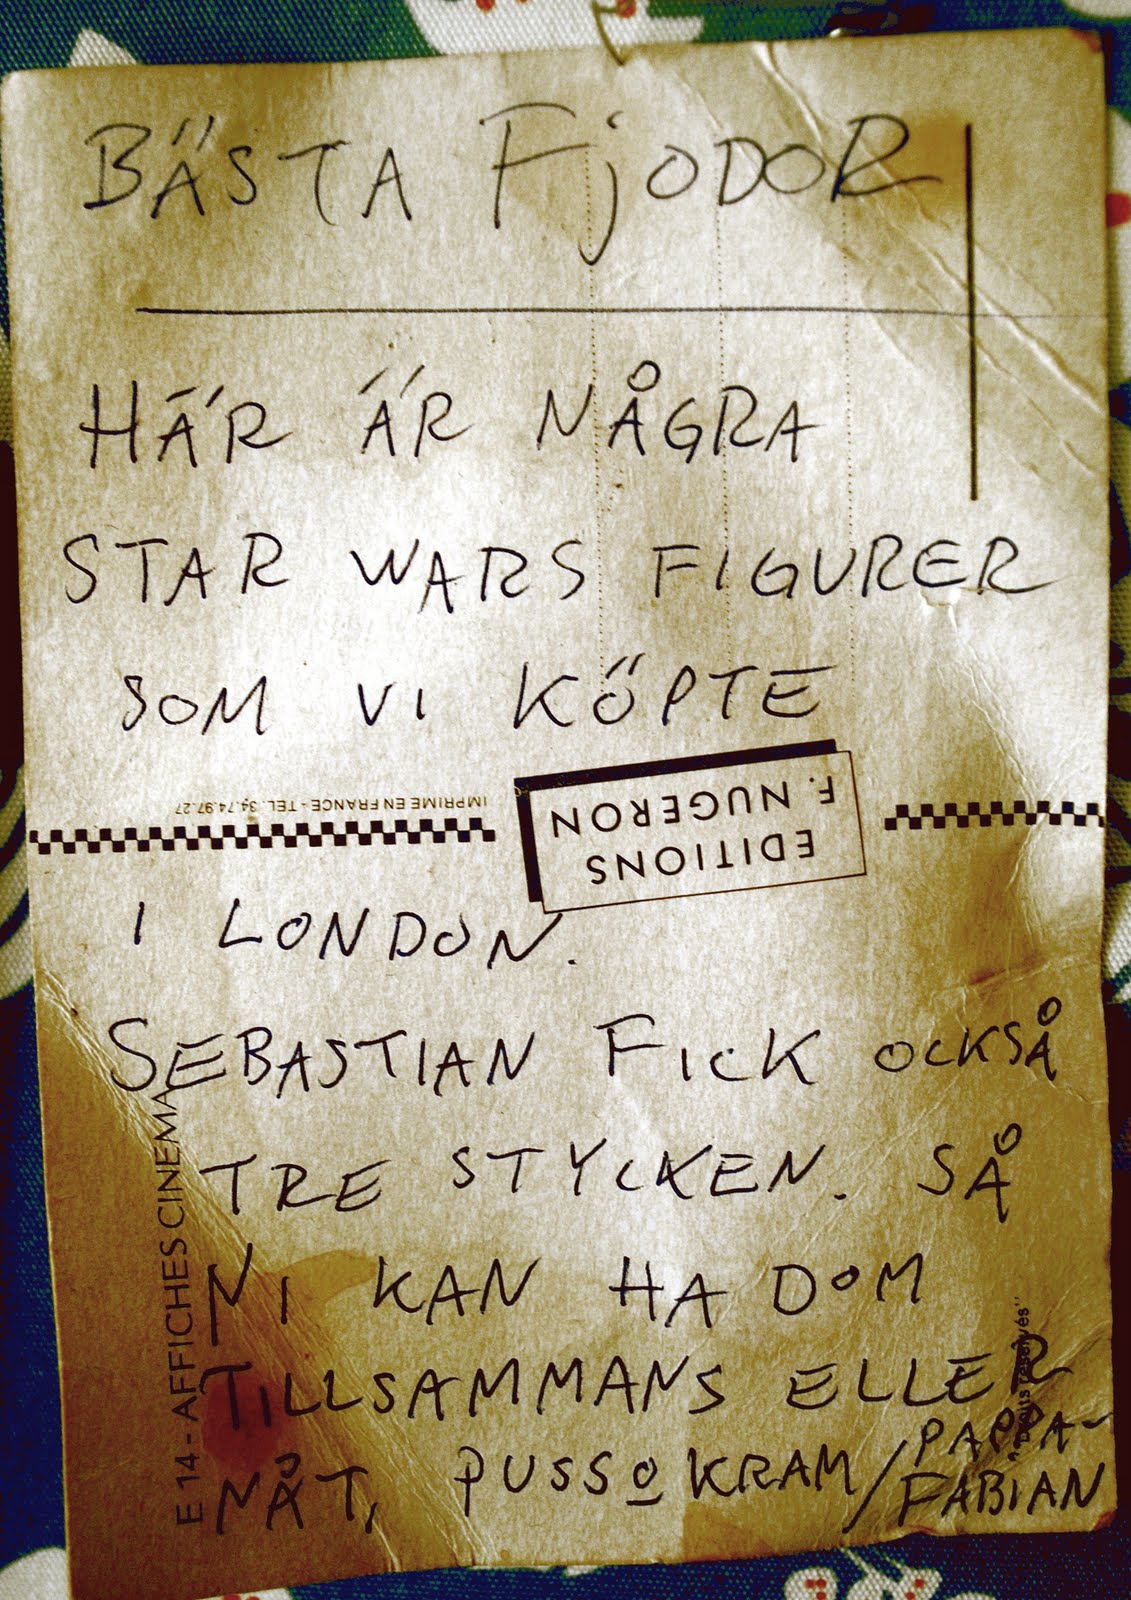 BÄSTA FJODOR
HÄR ÄR NÅGRA
STAR WARS FIGURER
SOM VI KÖPTE
IMPRIME EN FRANCE - TEL. 34.74.97.27
EDITIONS
F. NUGERON
I LONDON.
SEBASTIAN FICK OCKSÅ
TRE STYCKEN. SÅ
NI KAN HA DOM
TILLSAMMANS ELLER
NÅT, PUSS O KRAM / PAPPA-
FABIAN
E 14 - AFFICHES CINEMA
"Droits réservés"